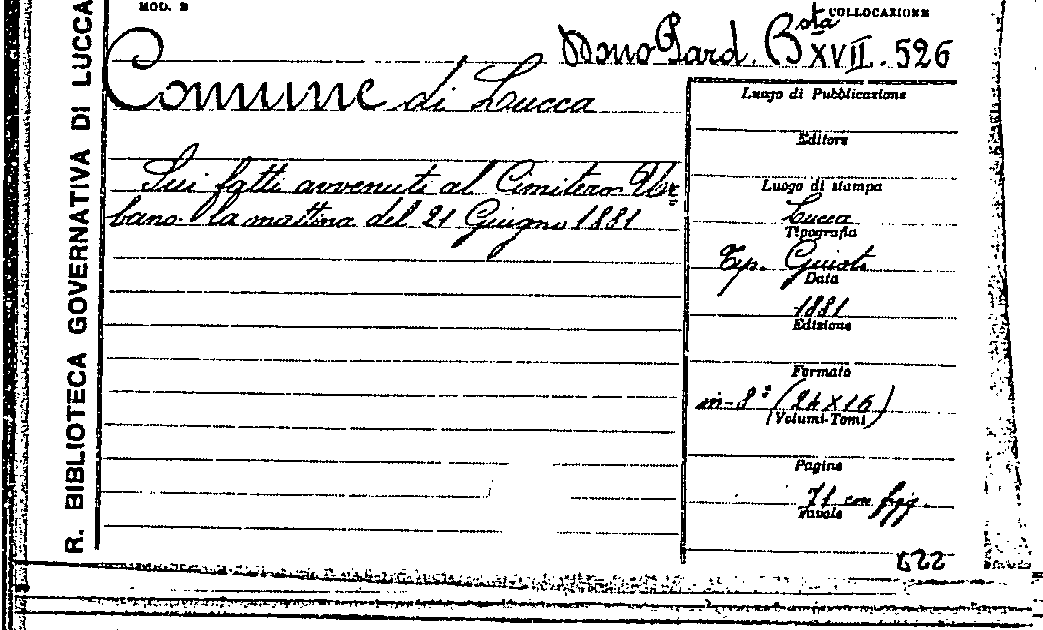 MOD. B
COLLOCAZIONE
Dono Pard. Bsta XVII. 526
Comune di Lucca
Sui fatti avvenuti al Cimitero Ur
bano la mattina del 21 Giugno 1881
R. BIBLIOTECA GOVERNATIVA DI LUCCA
Luogo di Pubblicazione
Editore
Luogo di stampa
Lucca
Tipografia
Tip. Giusti
Data
1881
Edizione
Formato
in-8° (24×16)
Volumi-Tomi
Pagine
71 con figg.
Tavole